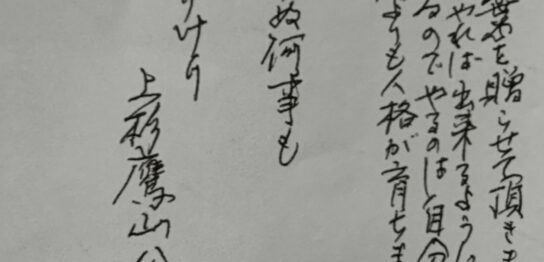 葉を贈らせて頂きま
やれば出来るように
るのでやるのは自分
よりも人格が育ちま
ぬ何事も
りけり
上杉鷹山公